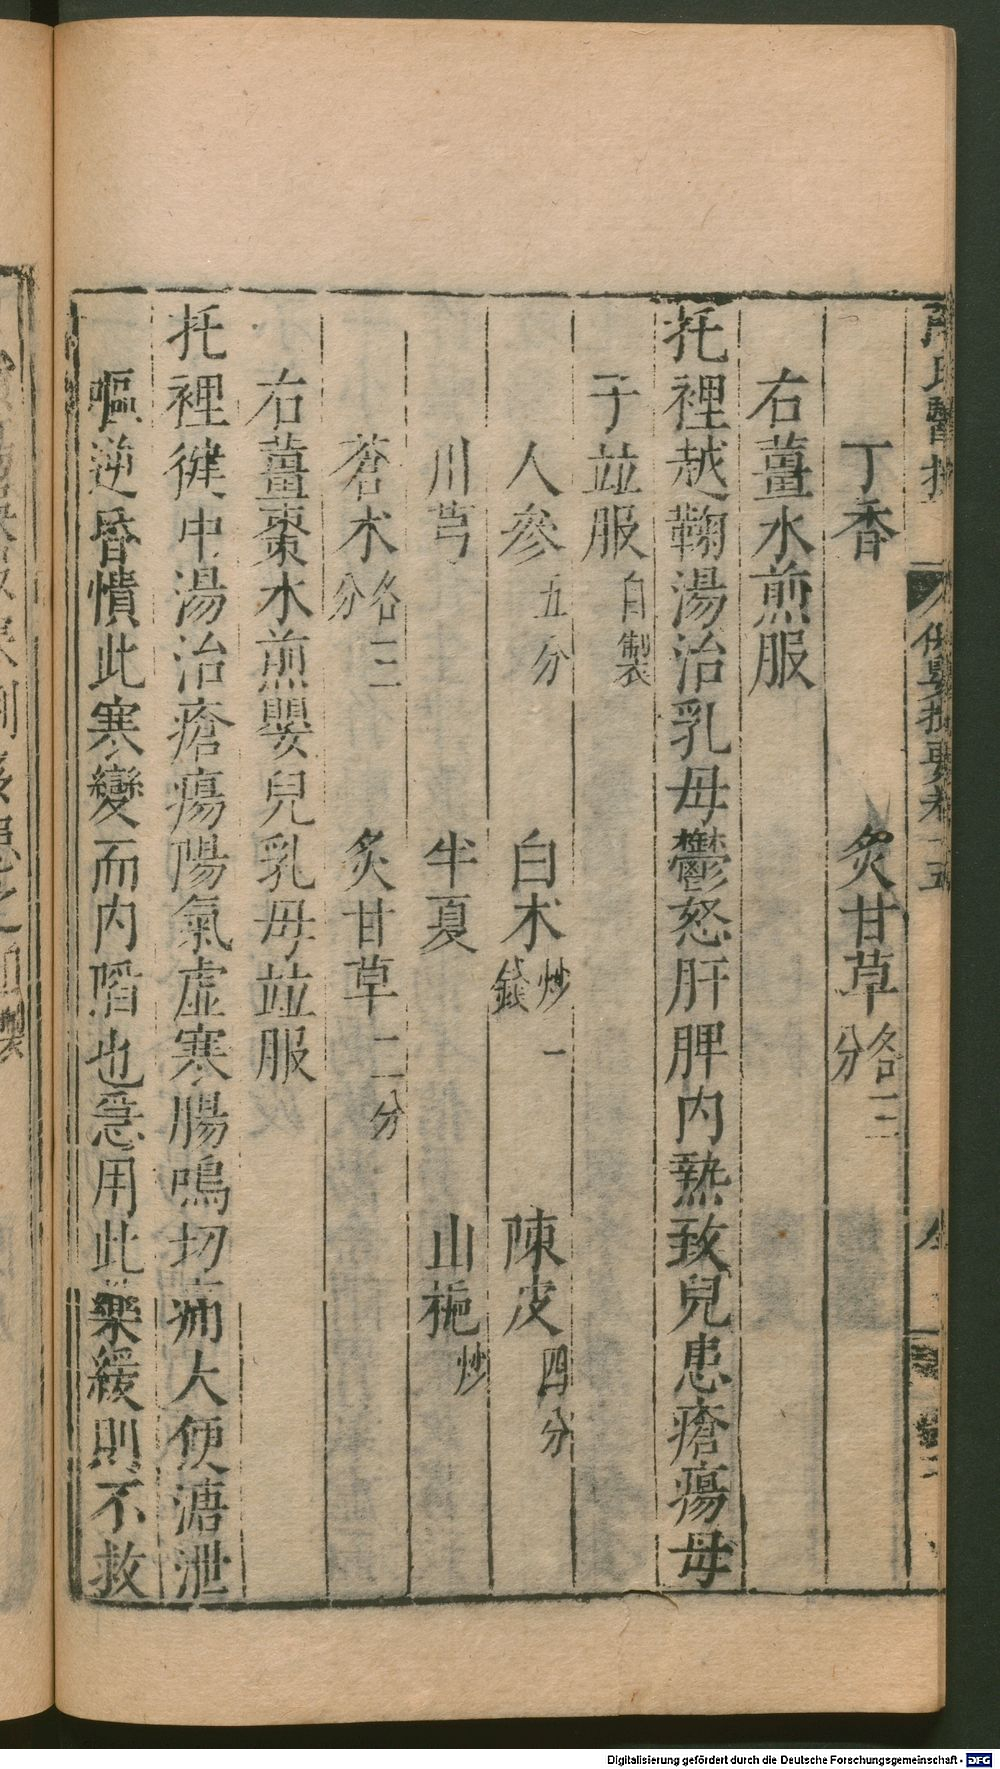 丁香　炙甘草各三分
右薑水煎服
托裡越鞠湯治乳母鬱怒肝脾內熱致兒患瘡瘍母
子並服自製
人參五分　白朮炒一錢　陳皮四分
川芎　半夏　山梔炒
蒼朮各三分　炙甘草二分
右薑棗水煎嬰兒乳母並服
托裡健中湯治瘡瘍陽氣虛寒腸鳴切痛大便溏泄
嘔逆昏憒此寒變而內陷也急用此藥緩則不救
Digitalisierung gefördert durch die Deutsche Forschungsgemeinschaft - DFG